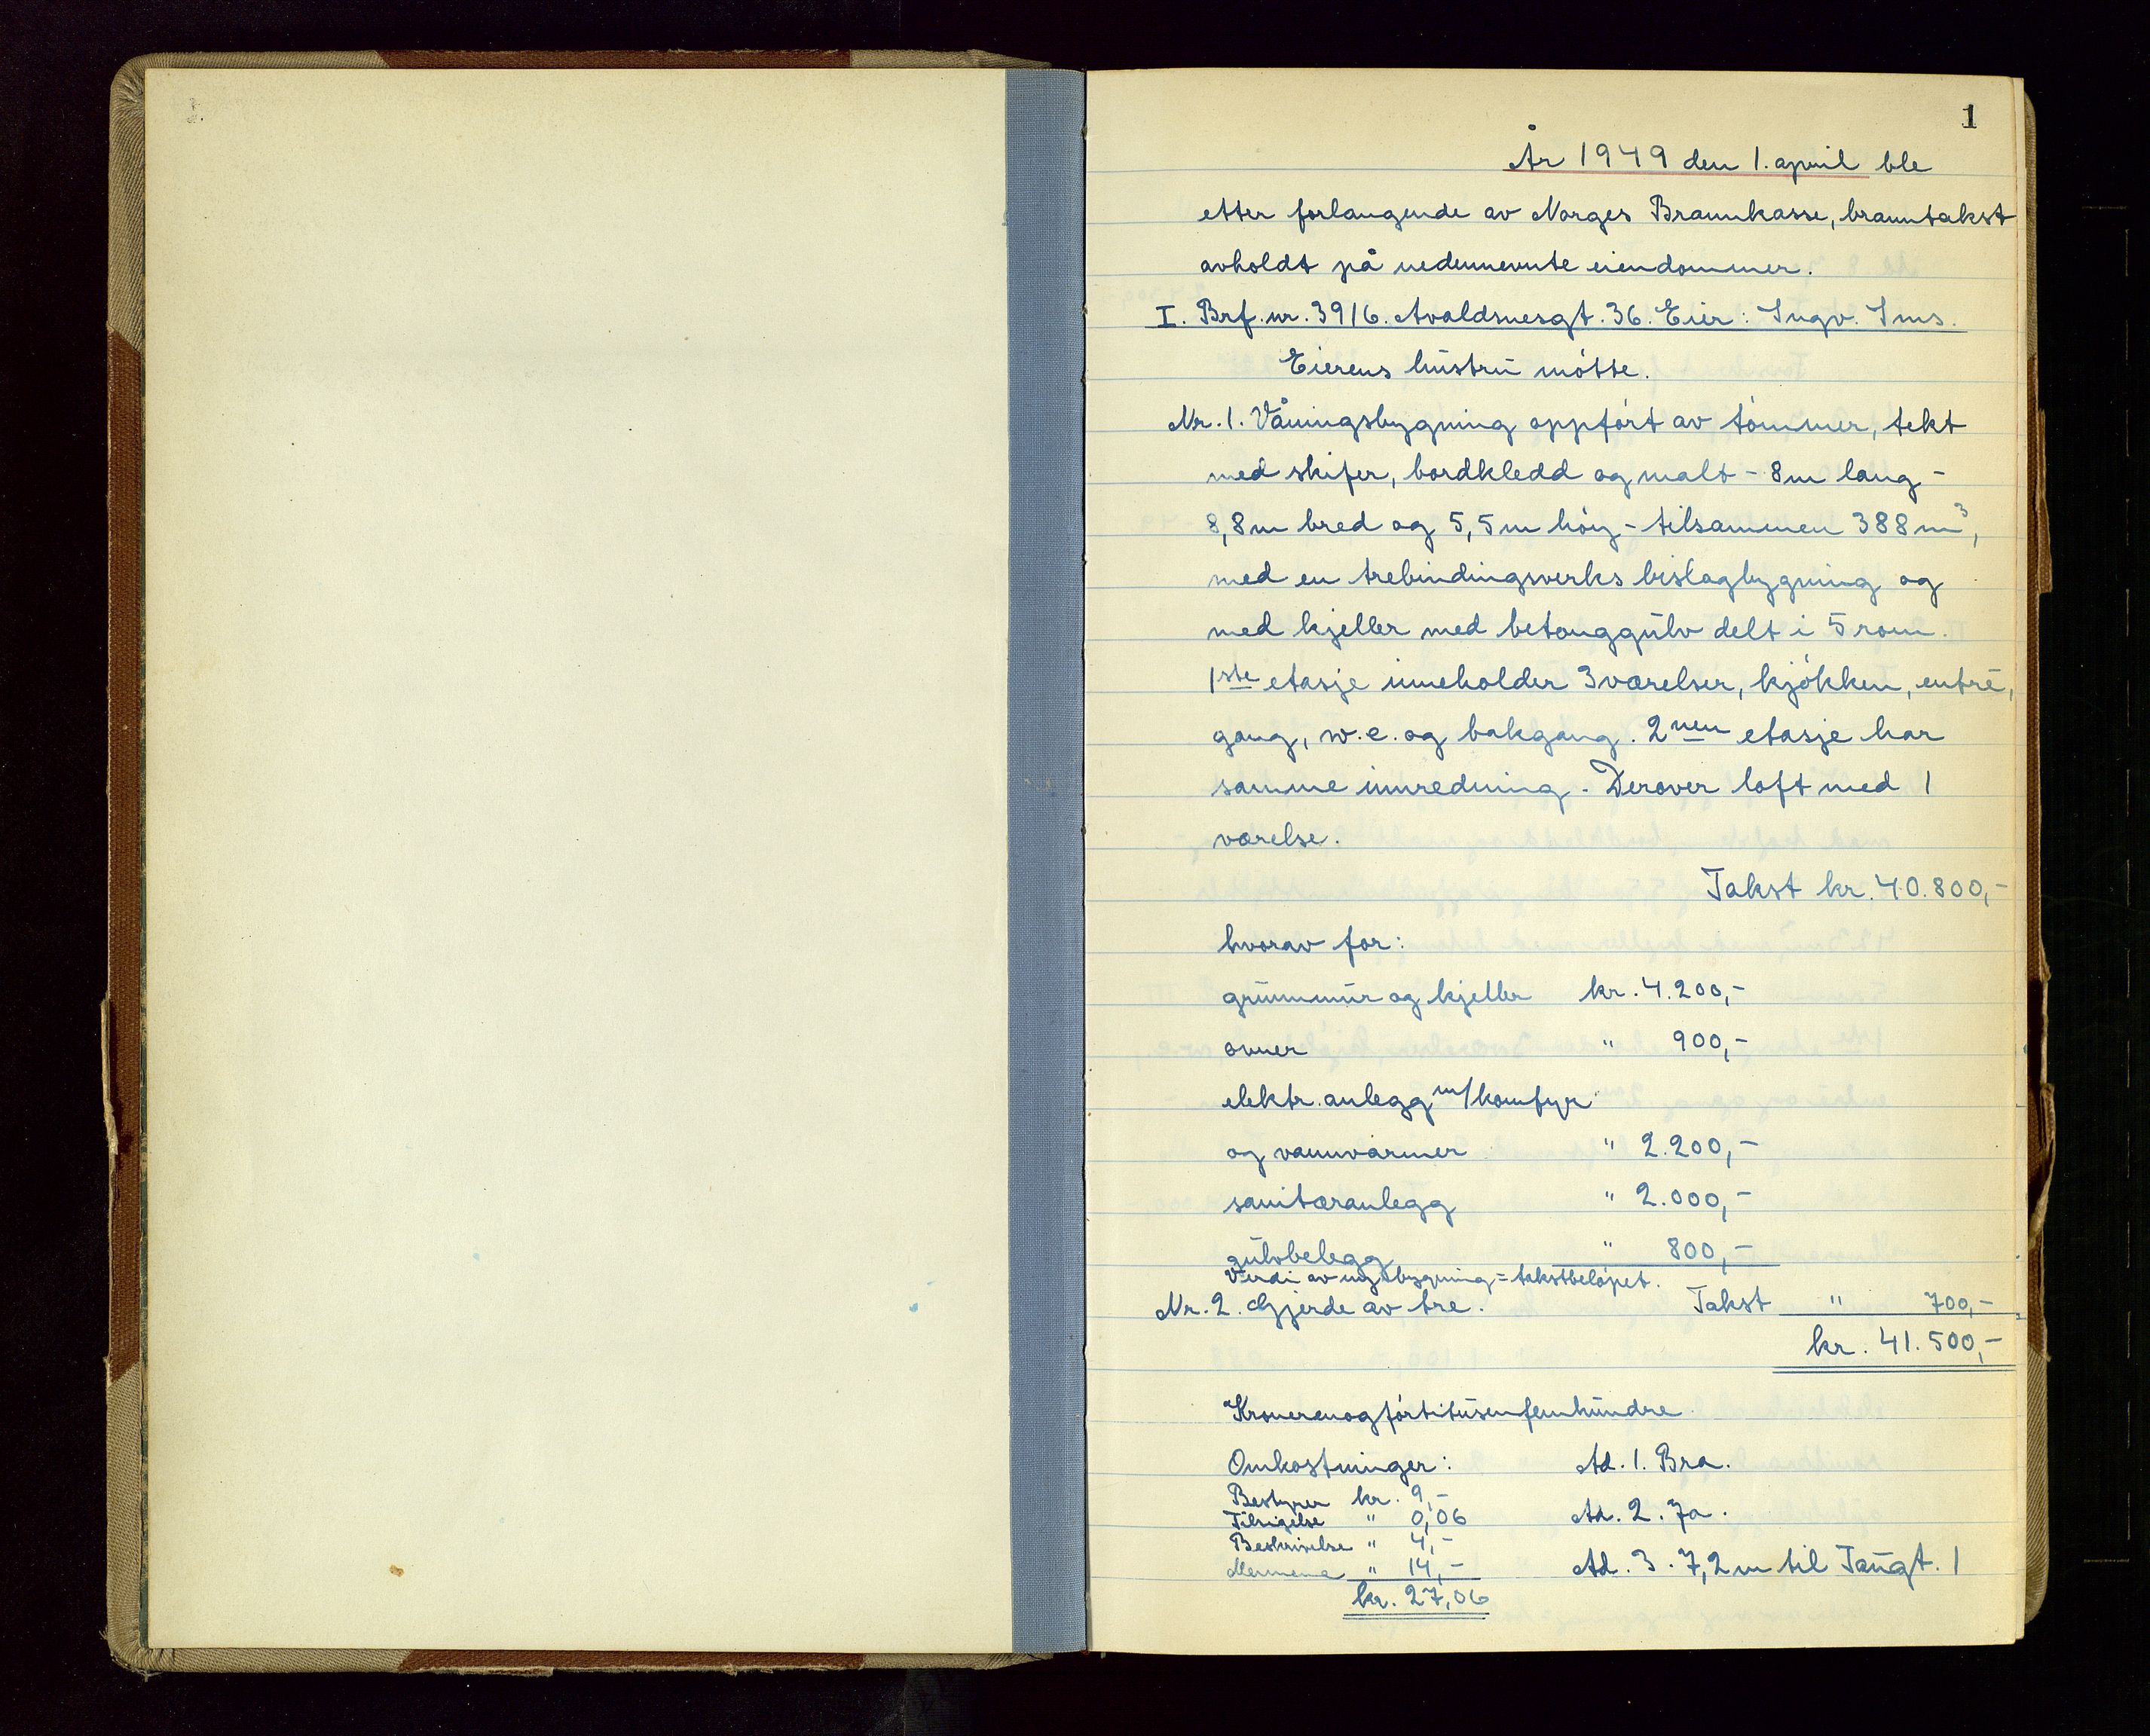 1
År 1949 den 1. april ble
etter forlangende av Norges Brannkasse, branntakst
avholdt på nedennevnte eiendommer.
I. Brf. nr. 3916. Avaldsnesgt. 36. Eier: Ingv. Ims.
Eierens hustru møtte.
Nr. 1. Våningsbygning oppført av tømmer, tekt
med skifer, bordkledd og malt - 8m lang -
8,8m bred og 5,5m høy - tilsammen 388 m³,
med en trebindingsverks bislagbygning og
med kjeller med betonggulv delt i 5 rom.
1ste etasje inneholder 3 værelser, kjøkken, entré,
gang, w.c. og bakgang. 2nen etasje har
samme innredning. Derover loft med 1
værelse.
Takst kr. 40.800,-
hvorav for:
grunnmur og kjeller kr. 4.200,-
ovner " 900,-
elektr. anlegg m/komfyr
og vannvarmer " 2.200,-
sanitæranlegg " 2.000,-
gulvbelegg " 800,-
Verdi av ny bygning = takstbeløpet.
Nr. 2. Gjerde av tre. Takst " 700,-
kr. 41.500,-
Kronerenogførtitusenfemhundre
Omkostninger: Ad. 1. Bra.
Bestyrer kr. 9,-
Tilsigelse " 0,06 Ad. 2. Ja.
Beskrivelse " 4,-
Mennene " 14,- Ad. 3. 7,2 m til Taugt. 1
kr. 27,06